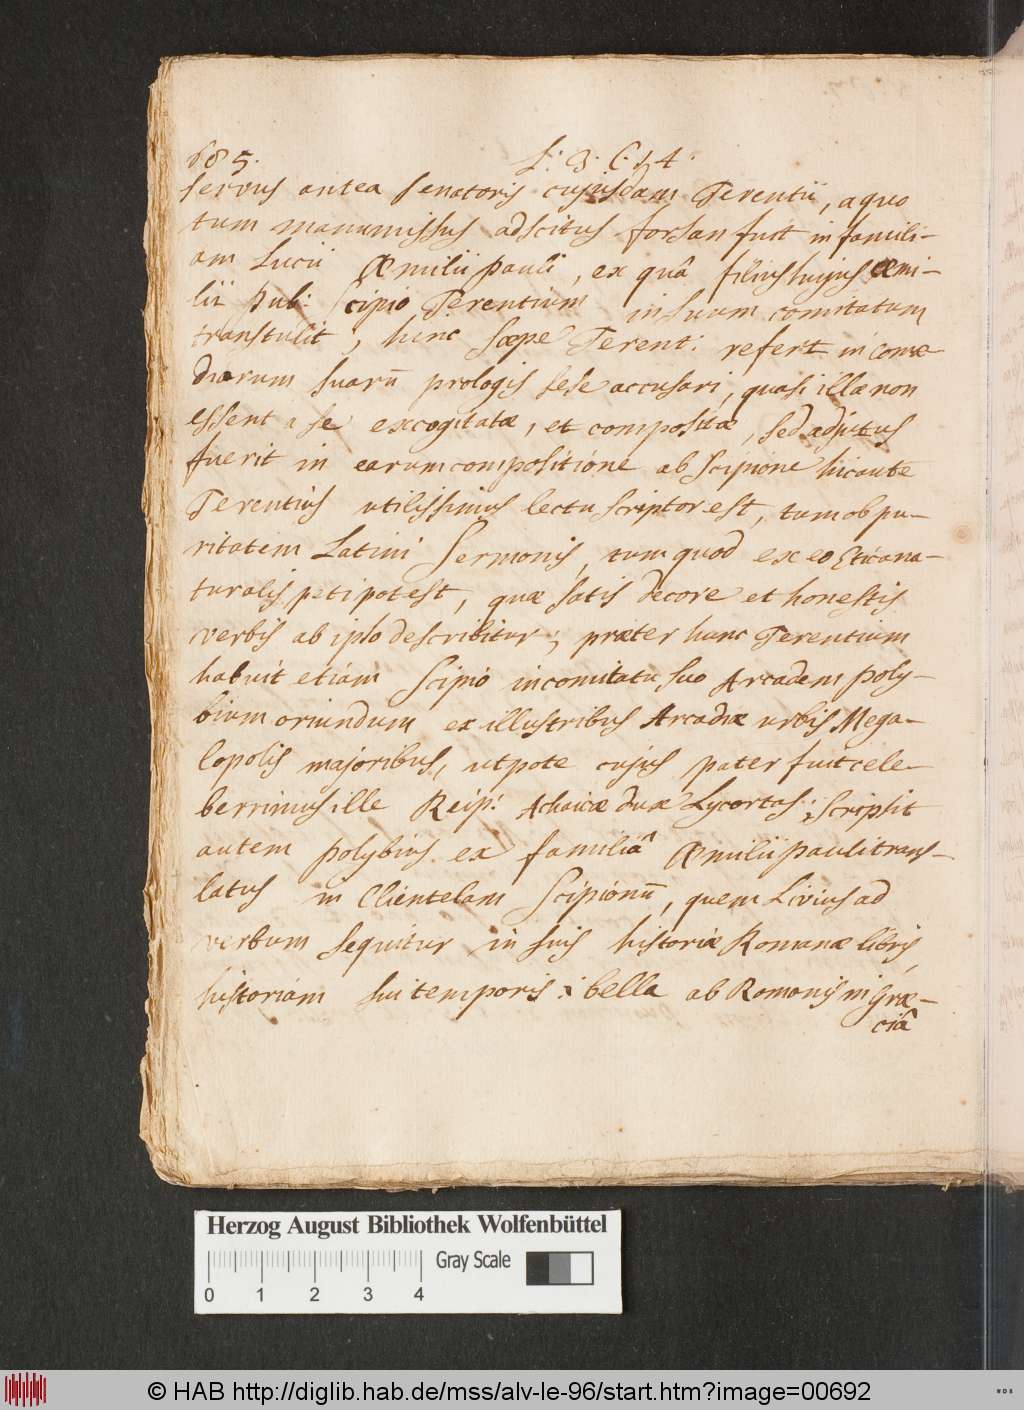 685.
L: 3. C. 14.
servus antea senatoris cujusdam Terentii, a quo
tum manumissus adscitus forsan fuit in famili-
am Lucii Æmilii pauli, ex quâ filius hujus æmi-
lii pub: Scipio Terentium in suum comitatum
transtulit, hinc sæpe Terent: refert in comœ-
diarum suarũ prologis sese accusari, quasi illæ non
essent a se excogitatæ, et compositæ, sed adjutus
fuerit in earum compositione ab scipione hicautẽ
Terentius utilissimus lectu scriptor est, tum ob pu-
ritatem Latini Sermonis, tum quod ex eo Etica na-
turalis peti potest, quæ satis decore et honestis
verbis ab ipso describitur; præter hunc Terentium
habuit etiam Scipio in comitatu suo Arcadem poly-
bium oriundum ex illustribus Arcadiæ urbis Mega-
lopolis majoribus, utpote cujus pater fuit cele-
berrimus ille Reip: Achaicæ dux Lycortas; scripsit
autem polybius ex familiâ Æmilii pauli trans-
latus in Clientelam Scipionũ, quem Livius ad
verbum sequitur in suis historiæ Romanæ libris,
historiam sui temporis: bella ab Romonis in Græ-
ciâ
Herzog August Bibliothek Wolfenbüttel
Gray Scale
0 1 2 3 4
© HAB http://diglib.hab.de/mss/alv-le-96/start.htm?image=00692